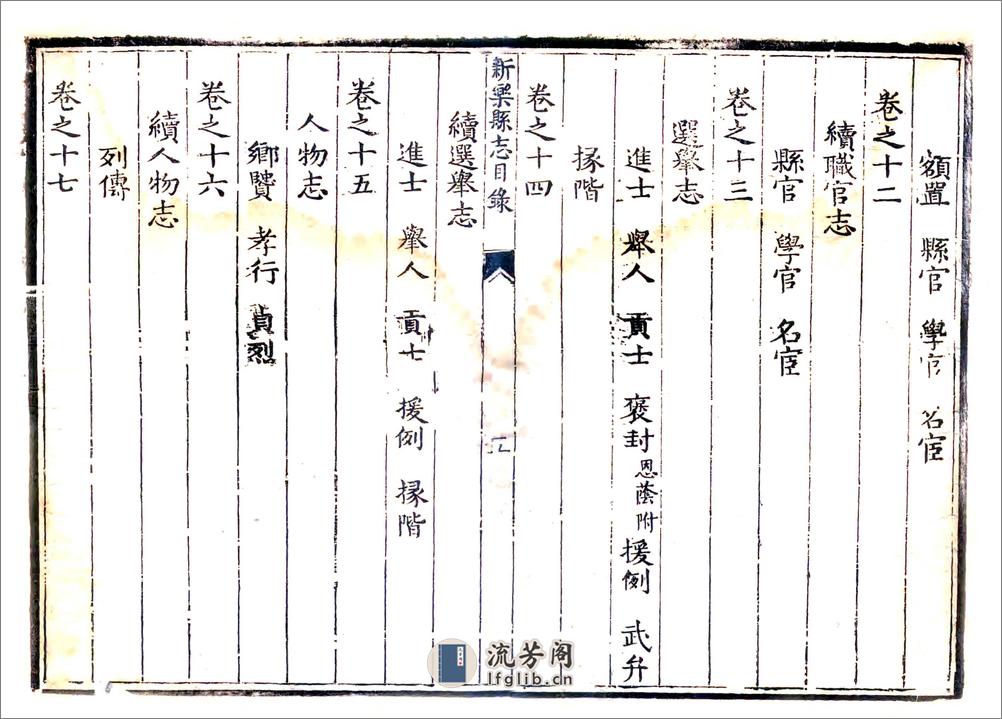 額置 縣官 學官 名宦
卷之十二
續職官志
縣官 學官 名宦
卷之十三
選舉志
進士 舉人 貢士 褒封 恩蔭附 援例 武弁
掾階
卷之十四
新樂縣志目錄
續選舉志
進士 舉人 貢士 援例 掾階
卷之十五
人物志
鄉賢 孝行 貞烈
卷之十六
續人物志
列傳
卷之十七
流芳阁
lfglib.cn